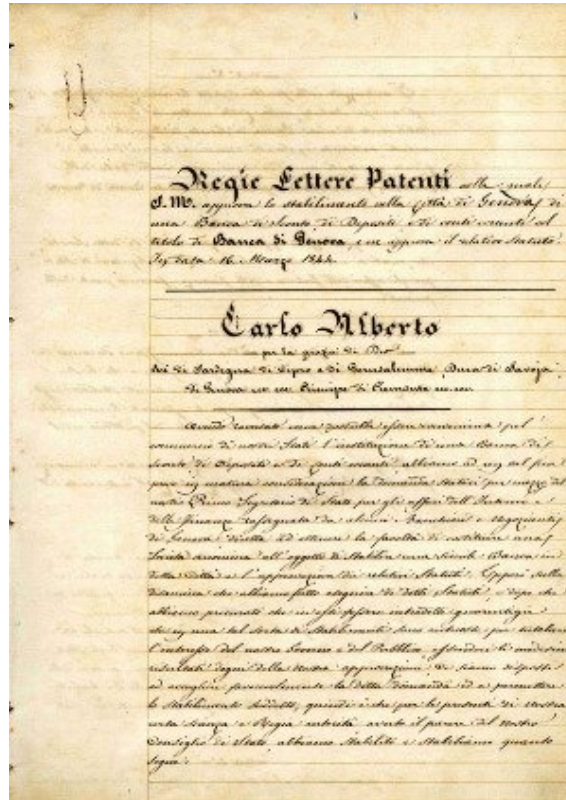 Regie Lettere Patenti colle quali
S. M. approva lo stabilimento nella Città di Genova di
una Banca di Sconto, di Depositi e di conti correnti col
titolo di Banca di Genova, e ne approva il relativo Statuto.
In data 16 Marzo 1844.
Carlo Alberto
per la grazia di Dio
Re di Sardegna di Cipro e di Gerusalemme Duca di Savoja
di Genova ecc. ecc. Principe di Piemonte ecc. ecc.
Avendo ravvisato come potrebbe essere conveniente pel
commercio de' nostri Stati l'instituzione di una Banca di
Sconto, di Depositi e di Conti correnti, abbiamo ad un tal fine
preso in matura considerazione la domanda statici per mezzo del
nostro Primo Segretario di Stato per gli affari dell'Interno e
delle Finanze rassegnata da alcuni Banchieri e Negozianti
di Genova diretta ad ottenere la facoltà di costituire una
Società anonima all'oggetto di stabilire una simile Banca in
detta città e l'approvazione dei relativi Statuti. Epperò sulla
disamina che abbiamo fatto eseguire di detti Statuti, e dopo che
abbiamo procurato che in essi fossero introdotte guarentigie
che in una tal sorta di Stabilimenti sono richieste per tutelare
l'interesse del nostro Governo e del Pubblico, essendone le medesime
risultati degni della nostra approvazione, Ci siamo disposti
ad accogliere favorevolmente la detta domanda ed a permettere
lo stabilimento suddetto; quindi è che per le presenti di nostra
certa scienza e Regia autorità avuto il parere del Nostro
Consiglio di Stato, abbiamo stabilito e stabiliamo quanto
segue: